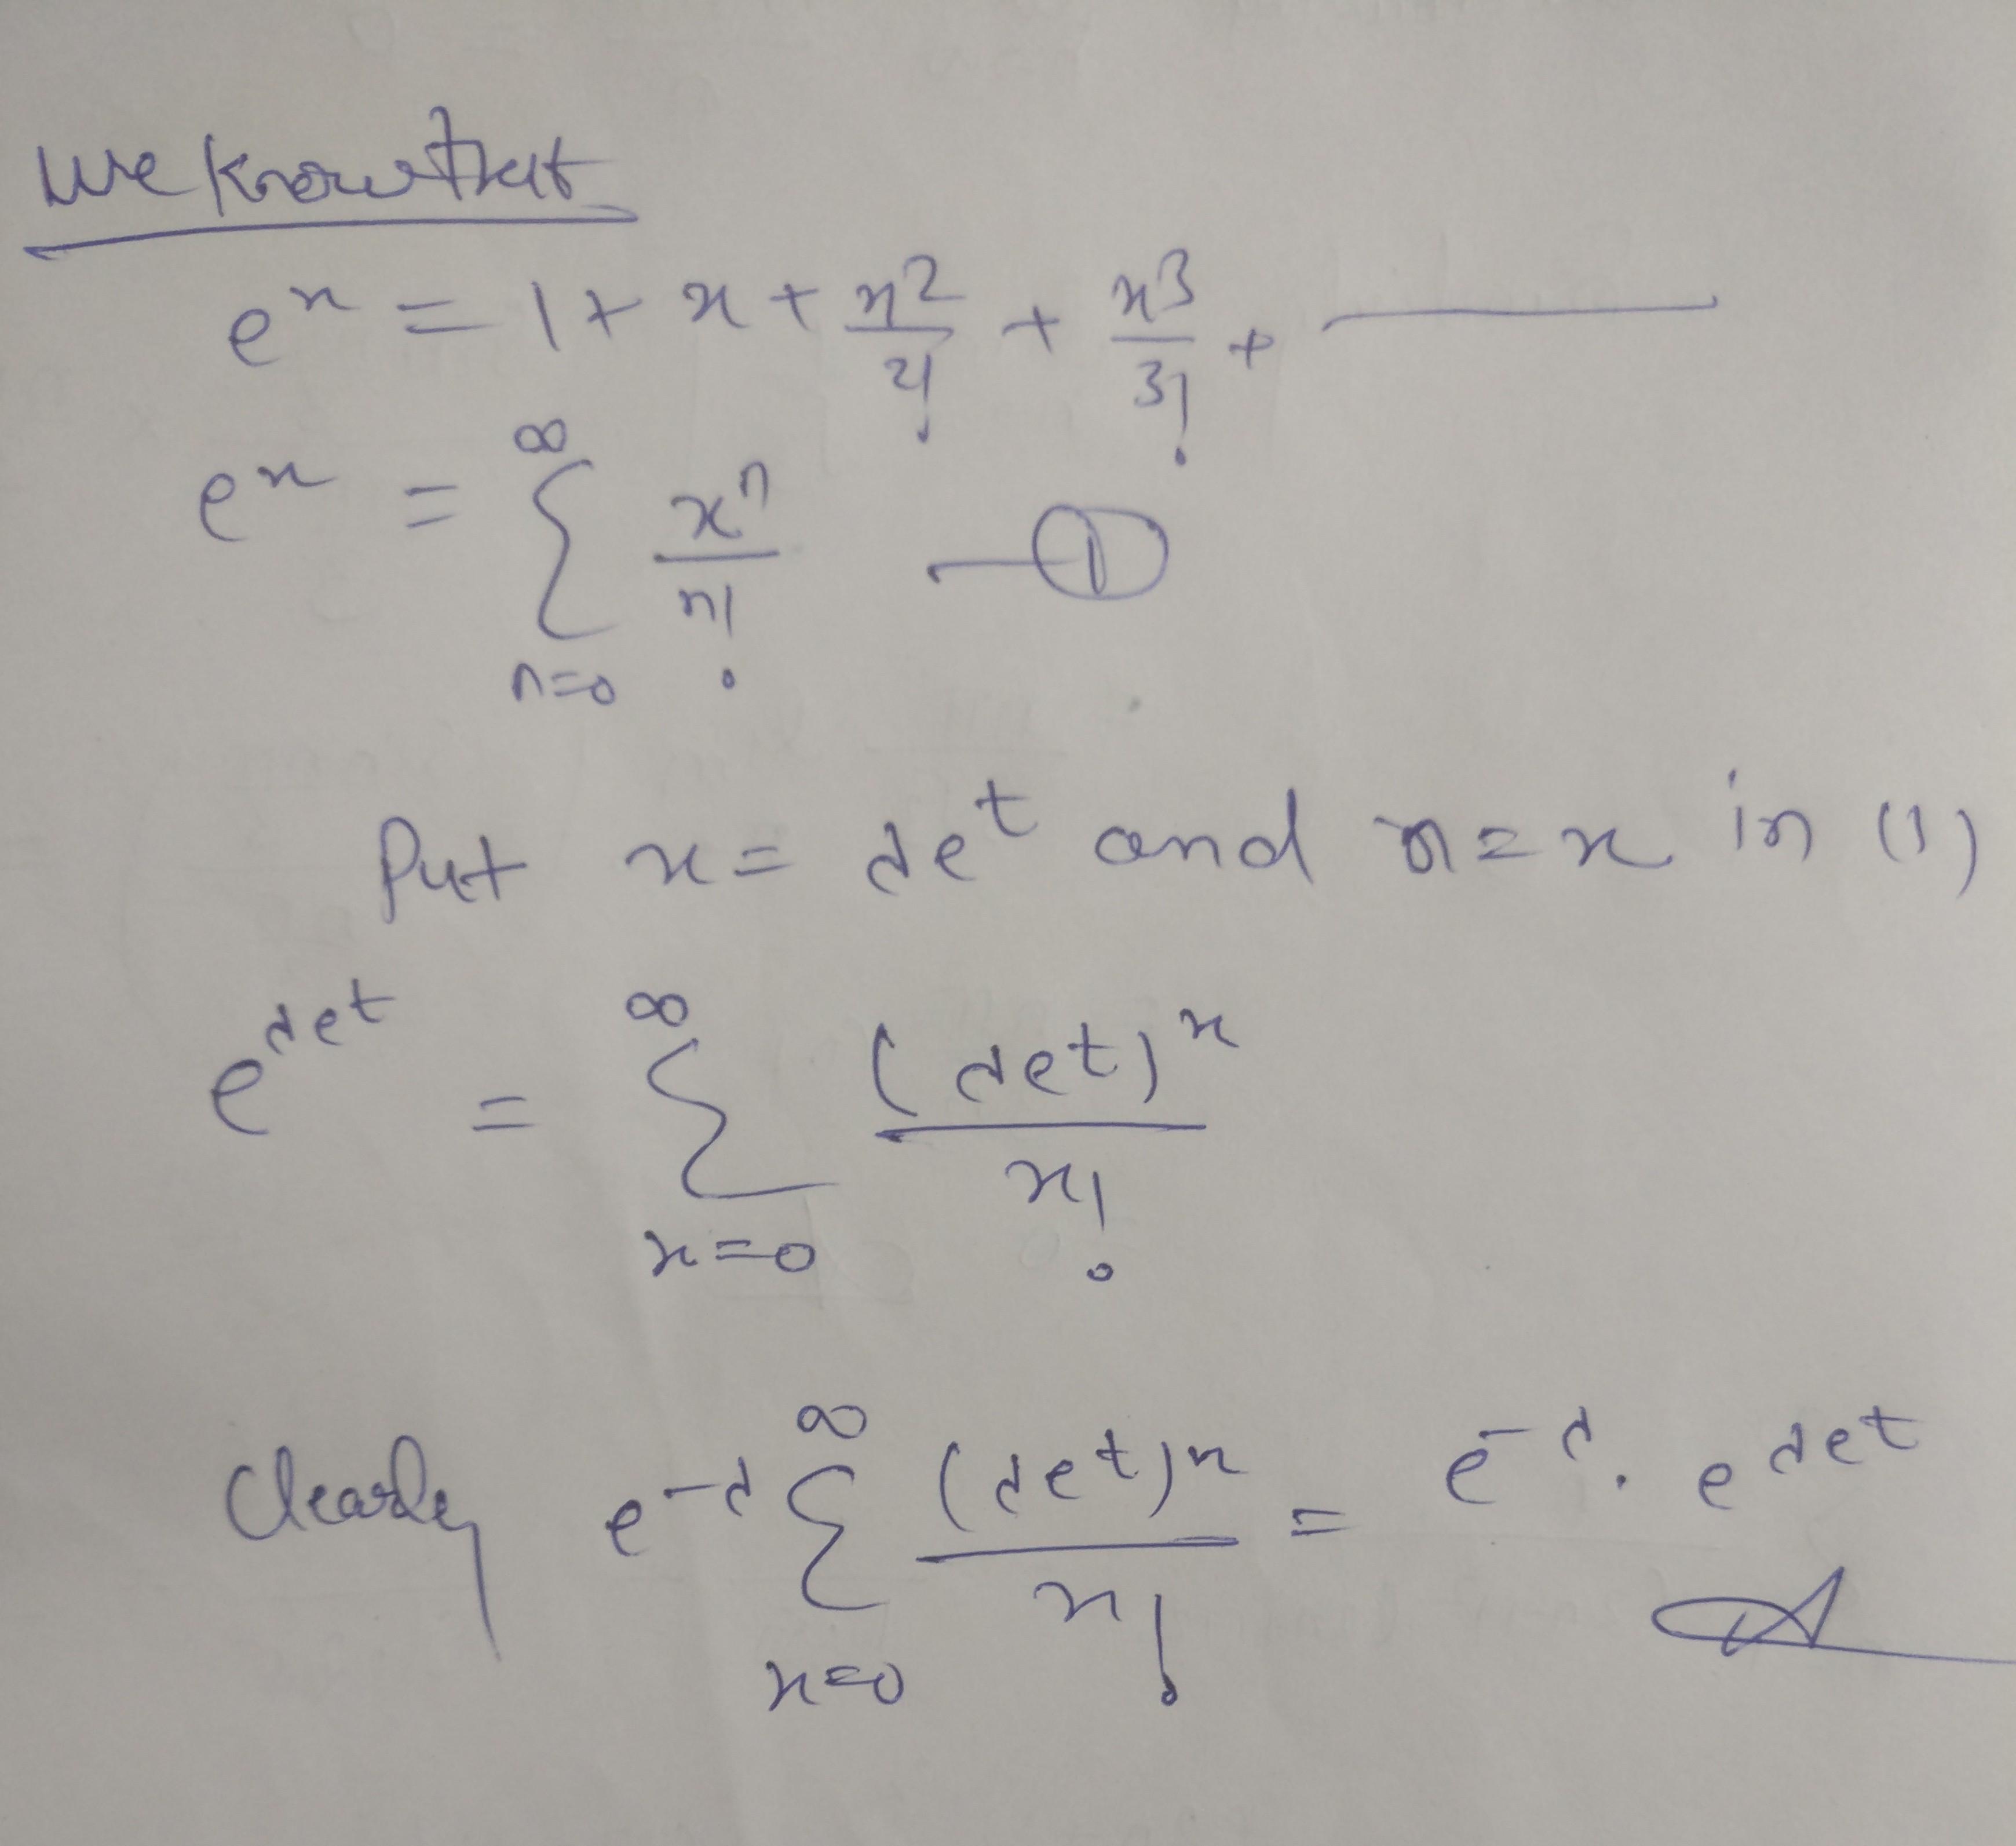 We know that
e^x = 1 + x + x^2/2! + x^3/3! + ———
e^x = ∑_{n=0}^{∞} x^n/n! —①
Put x = λe^t and n = x in (1)
e^{λe^t} = ∑_{x=0}^{∞} (λe^t)^x/x!
Clearly e^{-λ} ∑_{x=0}^{∞} (λe^t)^x/x! = e^{-λ} . e^{λe^t}